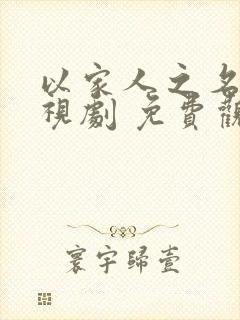 以家人之名
視劇 免費觀
寰宇歸壹